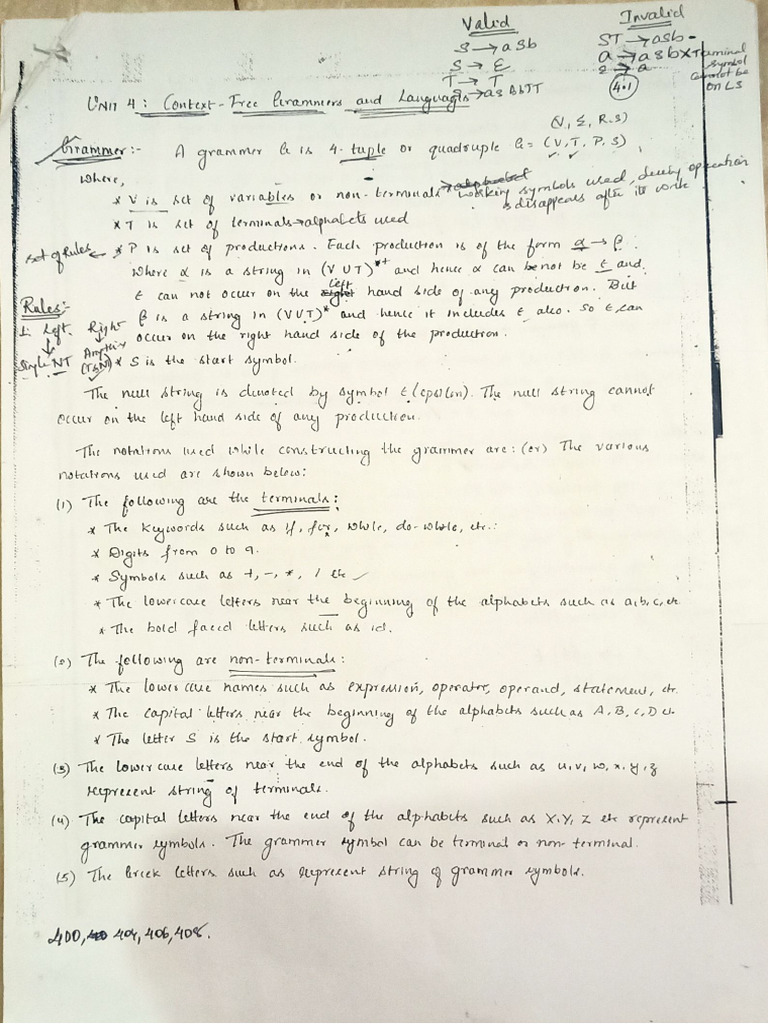 Valid Invalid
S → aSb ST → aSb -
S → ε a → asb X Terminal
T → T S → a symbol
S → aS AbTT 4.1 cannot be
on LS
UNIT 4: Context-Free Grammers and Languages
(V, Σ, R, S)
Grammer:- A grammer G is 4-tuple or quadruple G = (V, T, P, S)
Where,
* V is set of variables or non-terminals → working symbols used, during operation
& disappears after its work
* T is set of terminals → alphabets used
set of Rules ← * P is set of productions. Each production is of the form α → β.
Where α is a string in (V U T)*+ and hence α can be not be ε and
ε can not occur on the left hand side of any production. But
Rules:- β is a string in (V U T)* and hence it includes ε also. So ε can
1. Left Right occur on the right hand side of the production.
↓ ↓
Single NT Anything (T&NT) * S is the start symbol.
The null string is denoted by symbol ε (epsilon). The null string cannot
occur on the left hand side of any production.
The notations used while constructing the grammer are: (or) The various
notations used are shown below:
(1) The following are the terminals:
* The keywords such as if, for, while, do-while, etc.:
* Digits from 0 to 9.
* Symbols such as +, -, *, / etc
* The lowercase letters near the beginning of the alphabets such as a, b, c, etc
* The bold faced letters such as id.
(2) The following are non-terminals:
* The lower case names such as expression, operator, operand, statement, etc.
* The capital letters near the beginning of the alphabets such as A, B, C, D etc.
* The letter S is the start symbol.
(3) The lower case letters near the end of the alphabets such as u, v, w, x, y, z
represent string of terminals.
(4) The capital letters near the end of the alphabets such as X, Y, Z etc represent
grammer symbols. The grammer symbol can be terminal or non-terminal.
(5) The Greek letters such as represent string of grammer symbols.
400, 404, 406, 408.